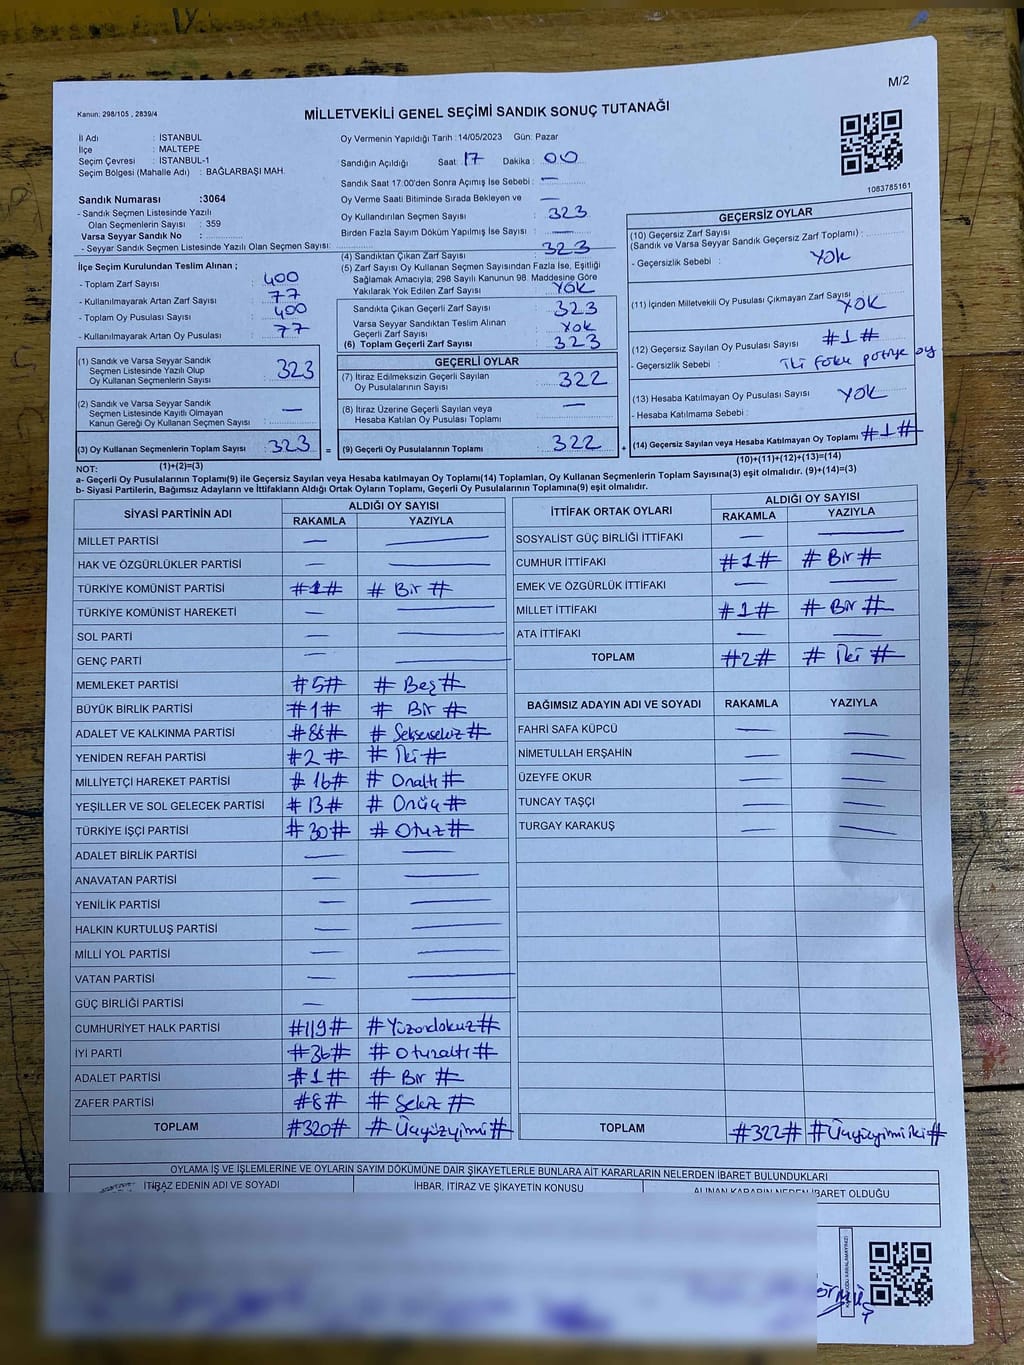 M/2
Kanun: 298/105 , 2839/4
MİLLETVEKİLİ GENEL SEÇİMİ SANDIK SONUÇ TUTANAĞI
İl Adı : İSTANBUL
İlçe : MALTEPE
Seçim Çevresi : İSTANBUL-1
Seçim Bölgesi (Mahalle Adı) : BAĞLARBAŞI MAH.
Sandık Numarası :3064
- Sandık Seçmen Listesinde Yazılı
Olan Seçmenlerin Sayısı : 359
Varsa Seyyar Sandık No :
- Seyyar Sandık Seçmen Listesinde Yazılı Olan Seçmen Sayısı:
Oy Vermenin Yapıldığı Tarih : 14/05/2023 Gün: Pazar
Sandığın Açıldığı Saat: 17 Dakika : 00
Sandık Saat 17:00'den Sonra Açımış İse Sebebi : —
Oy Verme Saati Bitiminde Sırada Bekleyen ve : —
Oy Kullandırılan Seçmen Sayısı : 323
Birden Fazla Sayım Döküm Yapılmış İse Sayısı : —
(4) Sandıktan Çıkan Zarf Sayısı : 323
(5) Zarf Sayısı Oy Kullanan Seçmen Sayısından Fazla İse, Eşitliği
Sağlamak Amacıyla; 298 Sayılı Kanunun 98. Maddesine Göre
Yakılarak Yok Edilen Zarf Sayısı : YOK
1083785161
İlçe Seçim Kurulundan Teslim Alınan ;
- Toplam Zarf Sayısı : 400
- Kullanılmayarak Artan Zarf Sayısı : 77
- Toplam Oy Pusulası : 400
- Kullanılmayarak Artan Oy Pusulası : 77
(1) Sandık ve Varsa Seyyar Sandık
Seçmen Listesinde Yazılı Olup
Oy Kullanan Seçmenlerin Sayısı : 323
(2) Sandık ve Varsa Seyyar Sandık
Seçmen Listesinde Kayıtlı Olmayan
Kanun Gereği Oy Kullanan Seçmen Sayısı : —
(3) Oy Kullanan Seçmenlerin Toplam Sayısı : 323 =
(1)+(2)=(3)
Sandıkta Çıkan Geçerli Zarf Sayısı : 323
Varsa Seyyar Sandıktan Teslim Alınan
Geçerli Zarf Sayısı : Yok
(6) Toplam Geçerli Zarf Sayısı : 323
GEÇERLİ OYLAR
(7) İtiraz Edilmeksizin Geçerli Sayılan
Oy Pusulalarının Sayısı : 322
(8) İtiraz Üzerine Geçerli Sayılan veya
Hesaba Katılan Oy Pusulası Toplamı : —
(9) Geçerli Oy Pusulalarının Toplamı : 322 +
GEÇERSİZ OYLAR
(10) Geçersiz Zarf Sayısı
(Sandık ve Varsa Seyyar Sandık Geçersiz Zarf Toplamı) :
- Geçersizlik Sebebi : YOK
(11) İçinden Milletvekili Oy Pusulası Çıkmayan Zarf Sayısı : YOK
(12) Geçersiz Sayılan Oy Pusulası Sayısı : #1#
- Geçersizlik Sebebi : iki partiye oy
(13) Hesaba Katılmayan Oy Pusulası Sayısı : YOK
- Hesaba Katılmama Sebebi :
(14) Geçersiz Sayılan veya Hesaba Katılmayan Oy Toplamı : #1#
(10)+(11)+(12)+(13)=(14)
NOT:
a- Geçerli Oy Pusulalarının Toplamı(9) ile Geçersiz Sayılan veya Hesaba katılmayan Oy Toplamı(14) Toplamları, Oy Kullanan Seçmenlerin Toplam Sayısına(3) eşit olmalıdır. (9)+(14)=(3)
b- Siyasi Partilerin, Bağımsız Adayların ve İttifakların Aldığı Ortak Oyların Toplamı, Geçerli Oy Pusulalarının Toplamına(9) eşit olmalıdır.
SİYASİ PARTİNİN ADI ALDIĞI OY SAYISI
RAKAMLA YAZIYLA
MİLLET PARTİSİ — —
HAK VE ÖZGÜRLÜKLER PARTİSİ — —
TÜRKİYE KOMÜNİST PARTİSİ #1# # Bir #
TÜRKİYE KOMÜNİST HAREKETİ — —
SOL PARTİ — —
GENÇ PARTİ — —
MEMLEKET PARTİSİ #5# # Beş #
BÜYÜK BİRLİK PARTİSİ #1# # Bir #
ADALET VE KALKINMA PARTİSİ #88# # Seksensekiz #
YENİDEN REFAH PARTİSİ #2# # İki #
MİLLİYETÇİ HAREKET PARTİSİ #16# # Onaltı #
YEŞİLLER VE SOL GELECEK PARTİSİ #13# # Onüç #
TÜRKİYE İŞÇİ PARTİSİ #30# # Otuz #
ADALET BİRLİK PARTİSİ — —
ANAVATAN PARTİSİ — —
YENİLİK PARTİSİ — —
HALKIN KURTULUŞ PARTİSİ — —
MİLLİ YOL PARTİSİ — —
VATAN PARTİSİ — —
GÜÇ BİRLİĞİ PARTİSİ — —
CUMHURİYET HALK PARTİSİ #119# # Yüzondokuz #
İYİ PARTİ #36# # Otuzaltı #
ADALET PARTİSİ #1# # Bir #
ZAFER PARTİSİ #8# # Sekiz #
TOPLAM #320# # Üçyüzyirmi #
İTTİFAK ORTAK OYLARI ALDIĞI OY SAYISI
RAKAMLA YAZIYLA
SOSYALİST GÜÇ BİRLİĞİ İTTİFAKI — —
CUMHUR İTTİFAKI #1# # Bir #
EMEK VE ÖZGÜRLÜK İTTİFAKI — —
MİLLET İTTİFAKI #1# # Bir #
ATA İTTİFAKI — —
TOPLAM #2# # İki #
BAĞIMSIZ ADAYIN ADI VE SOYADI RAKAMLA YAZIYLA
FAHRİ SAFA KÜPCÜ — —
NİMETULLAH ERŞAHİN — —
ÜZEYFE OKUR — —
TUNCAY TAŞÇI — —
TURGAY KARAKUŞ — —
TOPLAM #322# # Üçyüzyirmiiki #
OYLAMA İŞ VE İŞLEMLERİNE VE OYLARIN SAYIM DÖKÜMÜNE DAİR ŞİKAYETLERLE BUNLARA AİT KARARLARIN NELERDEN İBARET BULUNDUKLARI
İTİRAZ EDENİN ADI VE SOYADI İHBAR, İTİRAZ VE ŞİKAYETİN KONUSU ALINAN KARARIN NEDEN İBARET OLDUĞU